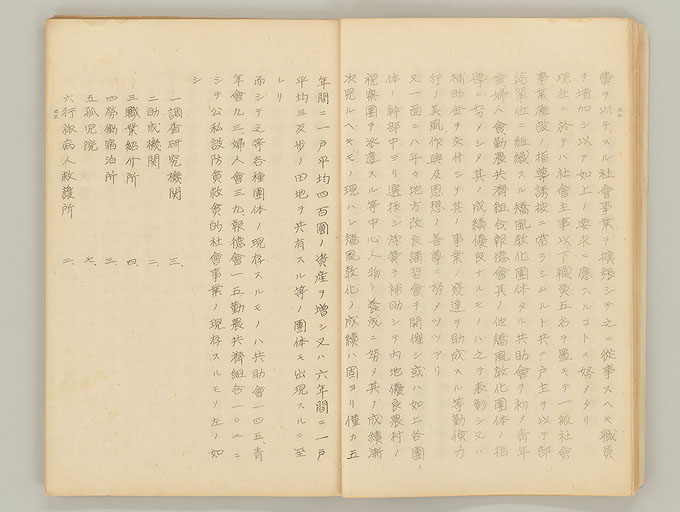 費ヲ以テスル社會事業ヲ擴張シテ之ニ從事スヘキ職員
ヲ增加シ以テ如上ノ要求ニ應スルコトニ努メタリ
現在ニ於テハ社會主事以下職員五名ヲ置キテ一般社會
事業施設ノ指導誘掖ニ當ラシムルト共ニ戶主ヲ以テ部
落單位ニ組織スル矯風敎化團体タル共助會ヲ初メ靑年
會婦人會勤農共濟組合報德會其ノ他矯風敎化團体ノ指
導ニ努メシメ其ノ成績優良ナルモノハ之ヲ表彰シ又ハ
補助金ヲ交付シテ其ノ事業ノ發達ヲ助成スル等勤儉力
行ノ美風作興及思想ノ善導ニ努メツツアリ
又一面ニハ年々地方改良講習會ヲ開催シ或ハ如上各團
体ノ幹部中ヨリ選拔シ旅費ヲ補助シテ內地優良農村ノ
視察團ヲ派遣スル等中心人物ノ養成ニ努メ其ノ成績漸
次見ルヘキモノ現ハレ矯風敎化ノ成績ハ固ヨリ僅カ五
年間ニ一戶平均四百圓ノ資產ヲ增シ又ハ六年間ニ一戶
平均三反步ノ田地ヲ共有スル等ノ團体モ出現スルニ至
レリ
而シテ之等各種團体ノ現存スルモノハ共助會一四五、靑
年會九三、婦人會三九、報德會一五、勤農共濟組合一〇二ニ
シテ公私設防貧救貧的社會事業ノ現存スルモノ左ノ如
シ
一調查硏究機關 三、
二助成機關 二、
三職業紹介所 四、
四勞働宿泊所 二、
五孤兒院 七、
六行旅病人救護所 二、